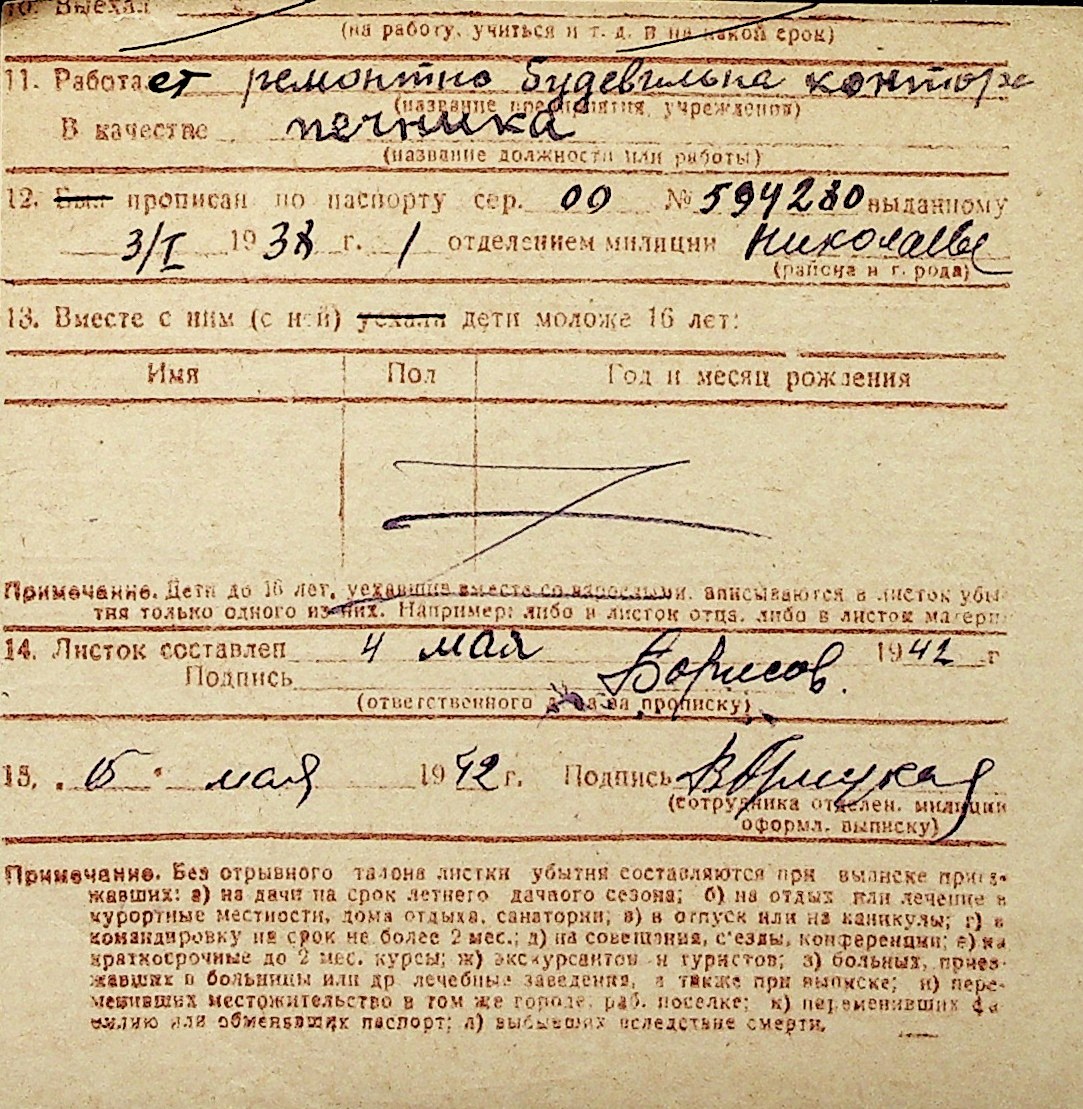 10. Выехал
(на работу, учиться и т. д. и на какой срок)
11. Работает ремонтно будевильна контора
(название предприятия, учреждения)
В качестве печника
(название должности или работы)
12. Был прописан по паспорту сер. 00 № 594280 выданному
3/I 1938 г. 1 отделением милиции Николаеве
(района и города)
13. Вместе с ним (с ней) уехали дети моложе 16 лет:
Имя Пол Год и месяц рождения
Примечание. Дети до 16 лет, уехавшие вместе со взрослыми, вписываются в листок убы-
тия только одного из них. Например: либо в листок отца, либо в листок матери
14. Листок составлен 4 мая 1942 г
Подпись Борисов.
(ответственного за прописку)
15. мая 1942 г. Подпись
(сотрудника отделен. милиции
оформл. выписку)
Примечание. Без отрывного талона листки убытия составляются при выписке приез-
жавших: а) на дачи на срок летнего дачного сезона; б) на отдых или лечение в
курортные местности, дома отдыха, санатории; в) в отпуск или на каникулы; г) в
командировку на срок не более 2 мес.; д) на совещания, с'езды, конференции; е) на
краткосрочные до 2 мес. курсы; ж) экскурсантов и туристов; з) больных, приез-
жавших в больницы или др лечебные заведения, а также при выписке; и) пере-
менивших местожительство в том же городе, раб. поселке; к) переменивших фа
милию или обменявших паспорт; л) выбывших вследствие смерти.